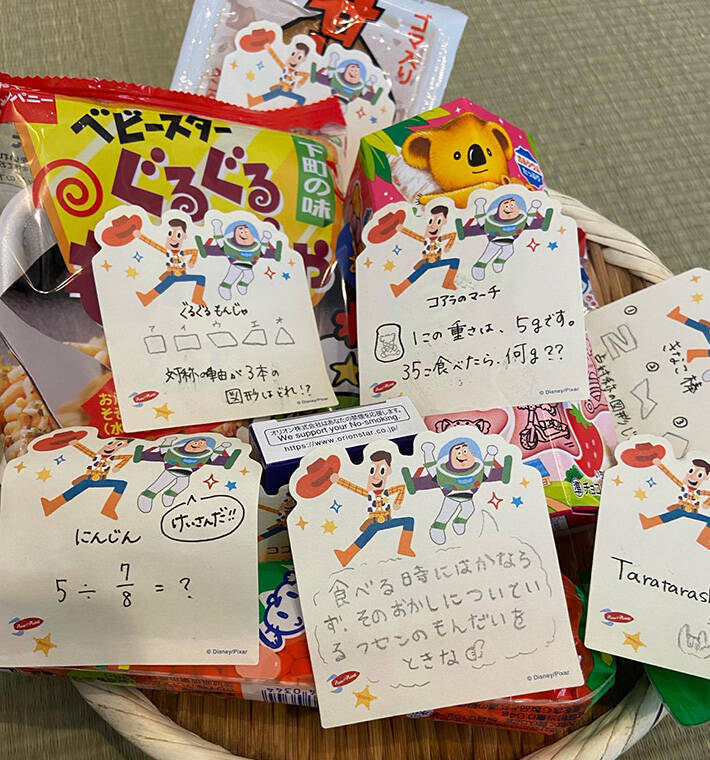 ゴマ入り
ンパニー
ベビースター
ぐるぐる
下町の味
ぐるぐるもんじゃ
ア イ ウ エ オ
対称の軸が3本の
図形はどれ!?
© Disney/Pixar
コアラのマーチ
1この重さは、5gです。
35こ食べたら、何g??
© Disney/Pixar
きなこ棒
オリオン株式会社はあなたの禁煙を応援します。
We support your No-smoking.
https://www.orionstar.co.jp/
けいさんだ!!
にんじん
5 ÷ 7/8 = ?
© Disney/Pixar
食べる時にはかなら
ず、そのおかしについてい
るフセンのもんだいを
ときな
© Disney/Pixar
Taratarash